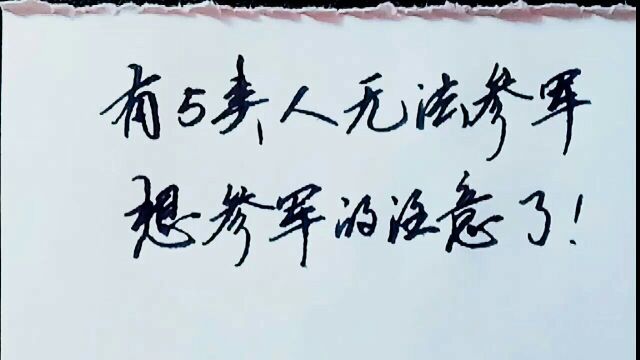 有5类人无法参军
想参军的注意了!